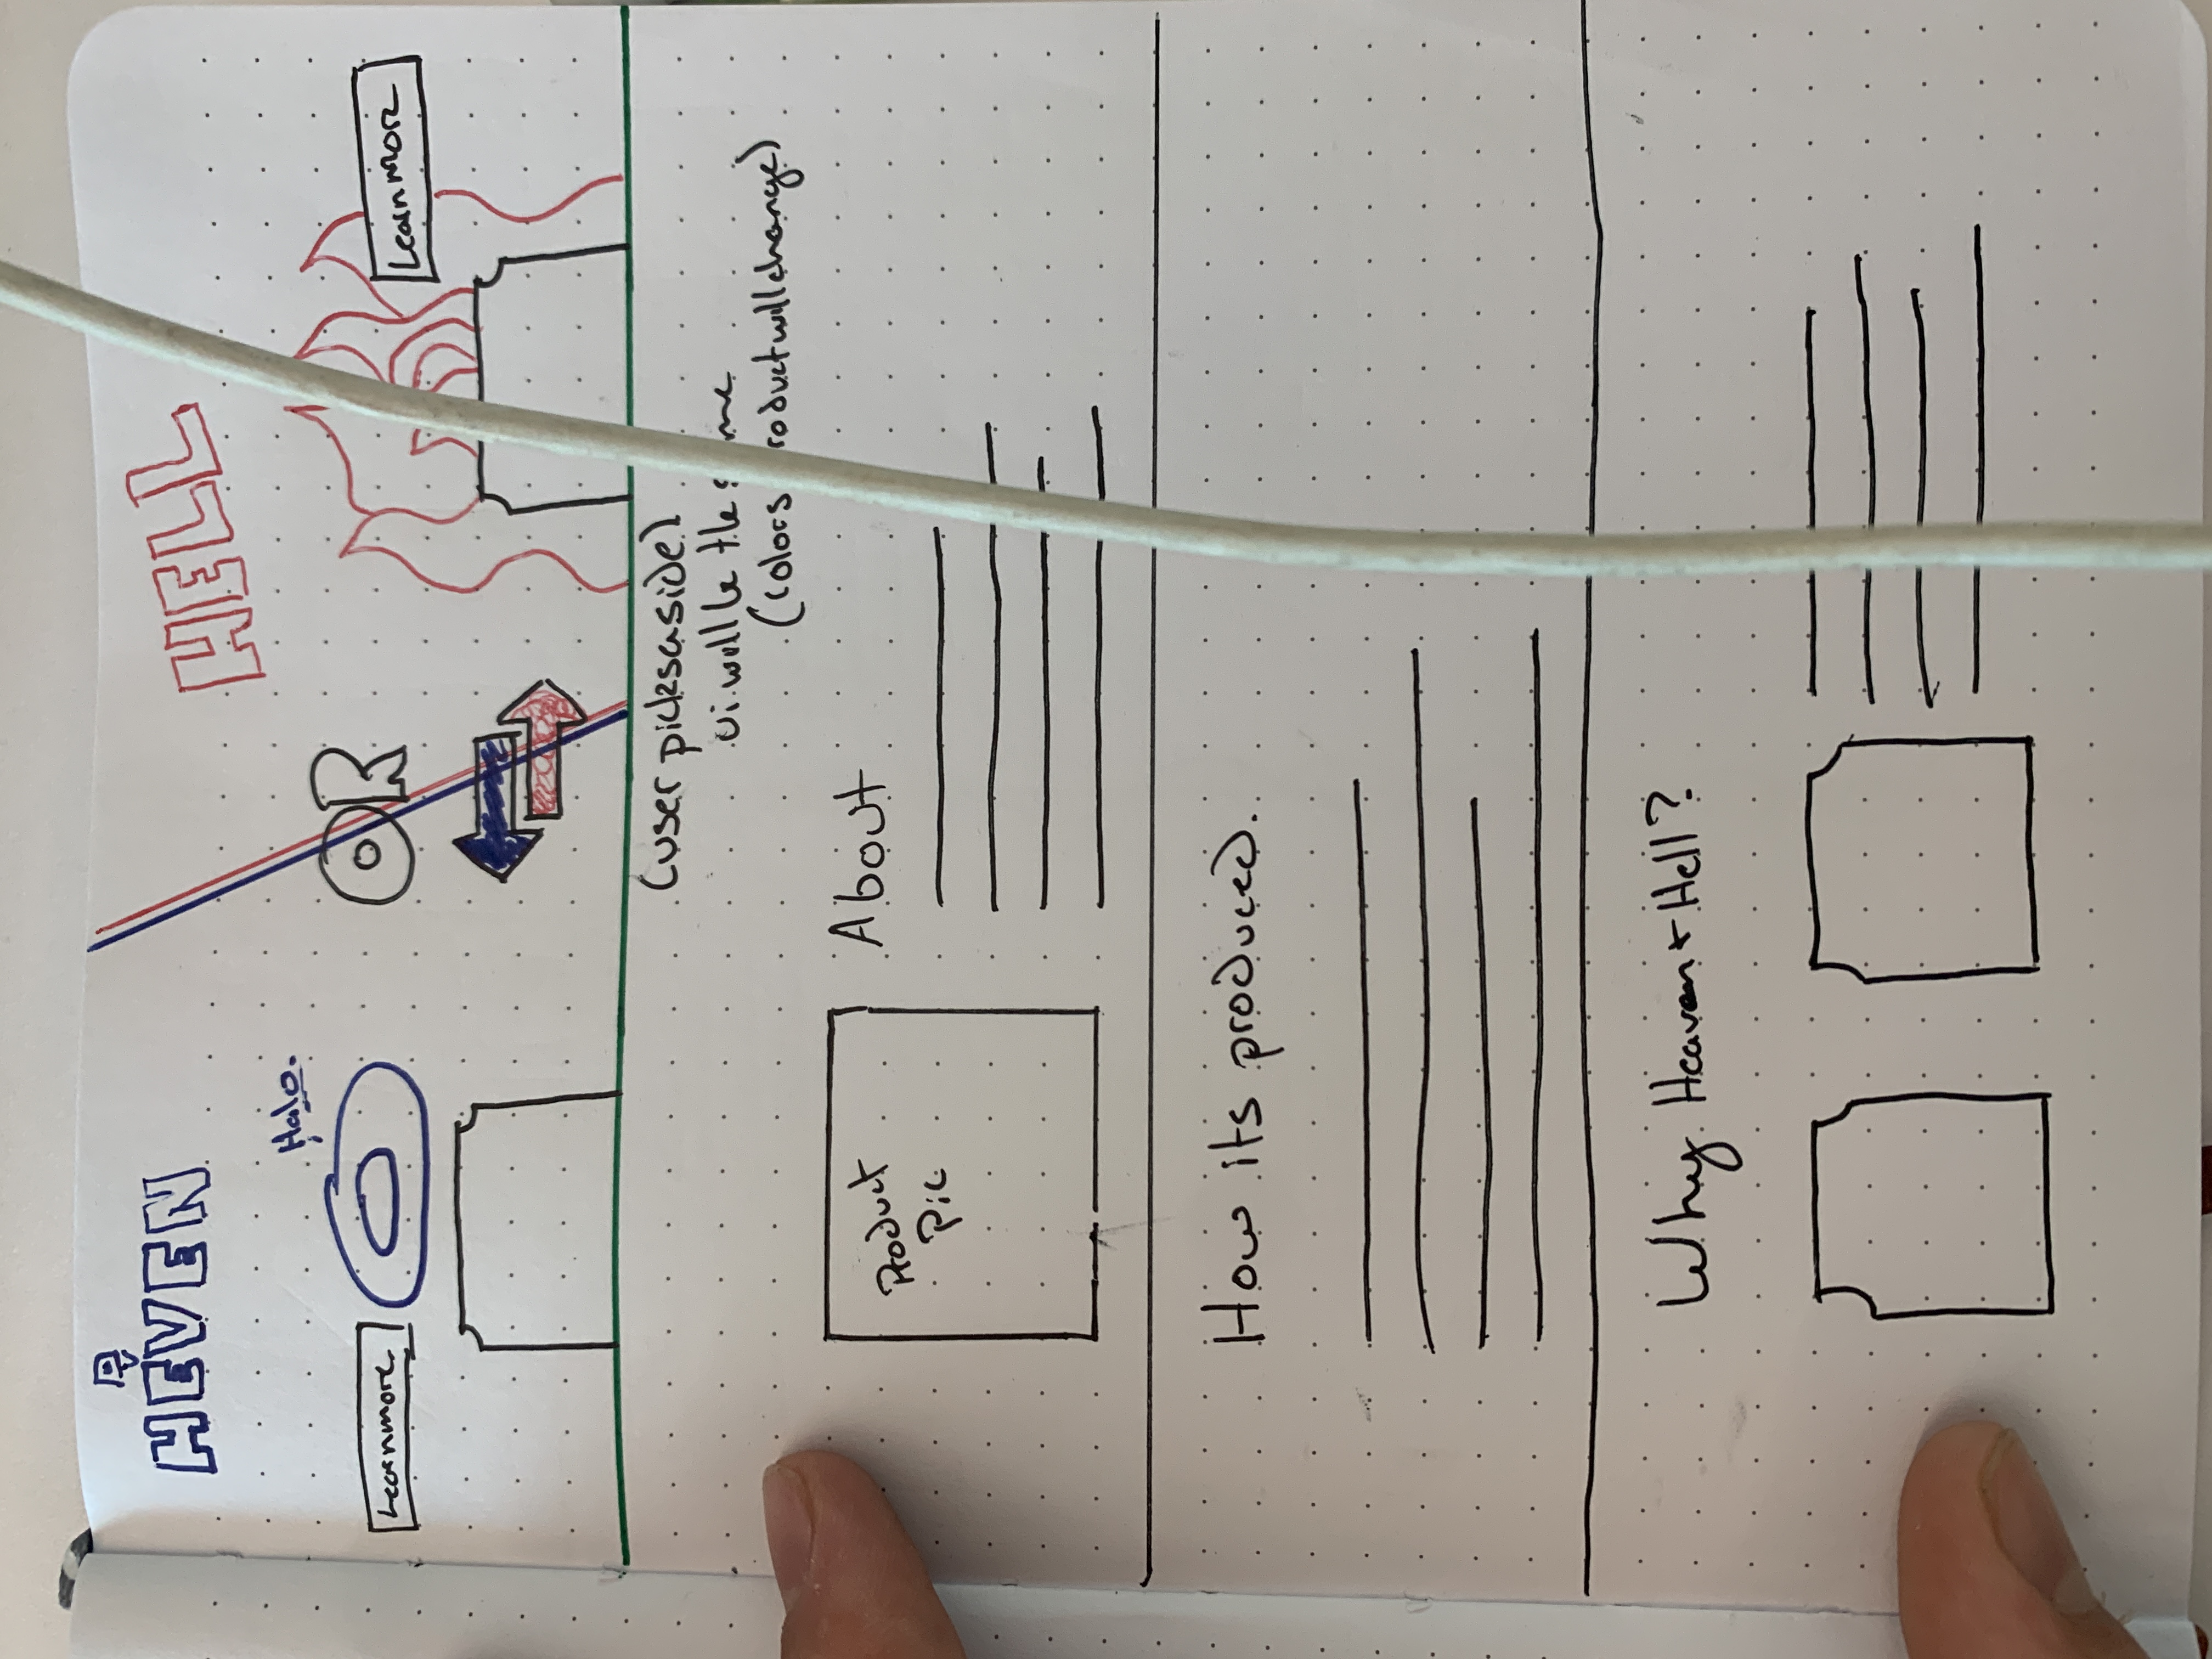 A
HEVEN
HELL
Halo.
Learn more
OR
Learn more
(user picks a side)
ui will be the s me
(colors roduct will change)
Product
Pic
About
How its produced.
Why Heaven + Hell?